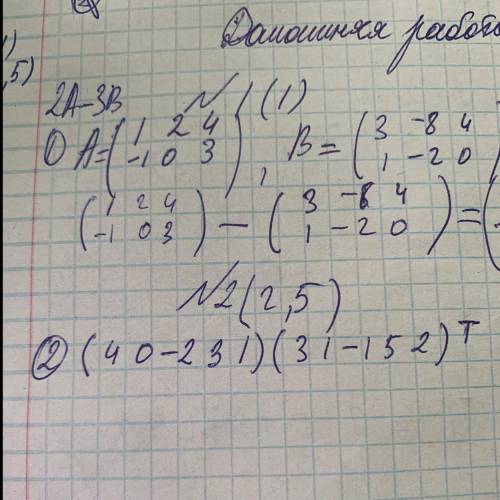 Домашняя работа
1)
,5)
2A-3B № (1)
① A=(1 2 4
-1 0 3), B=(3 -8 4
1 -2 0
(1 2 4
-1 0 3) - (3 -8 4
1 -2 0) = (
№2(2,5)
② (4 0 -2 3 1)(3 1 -1 5 2)ᵀ